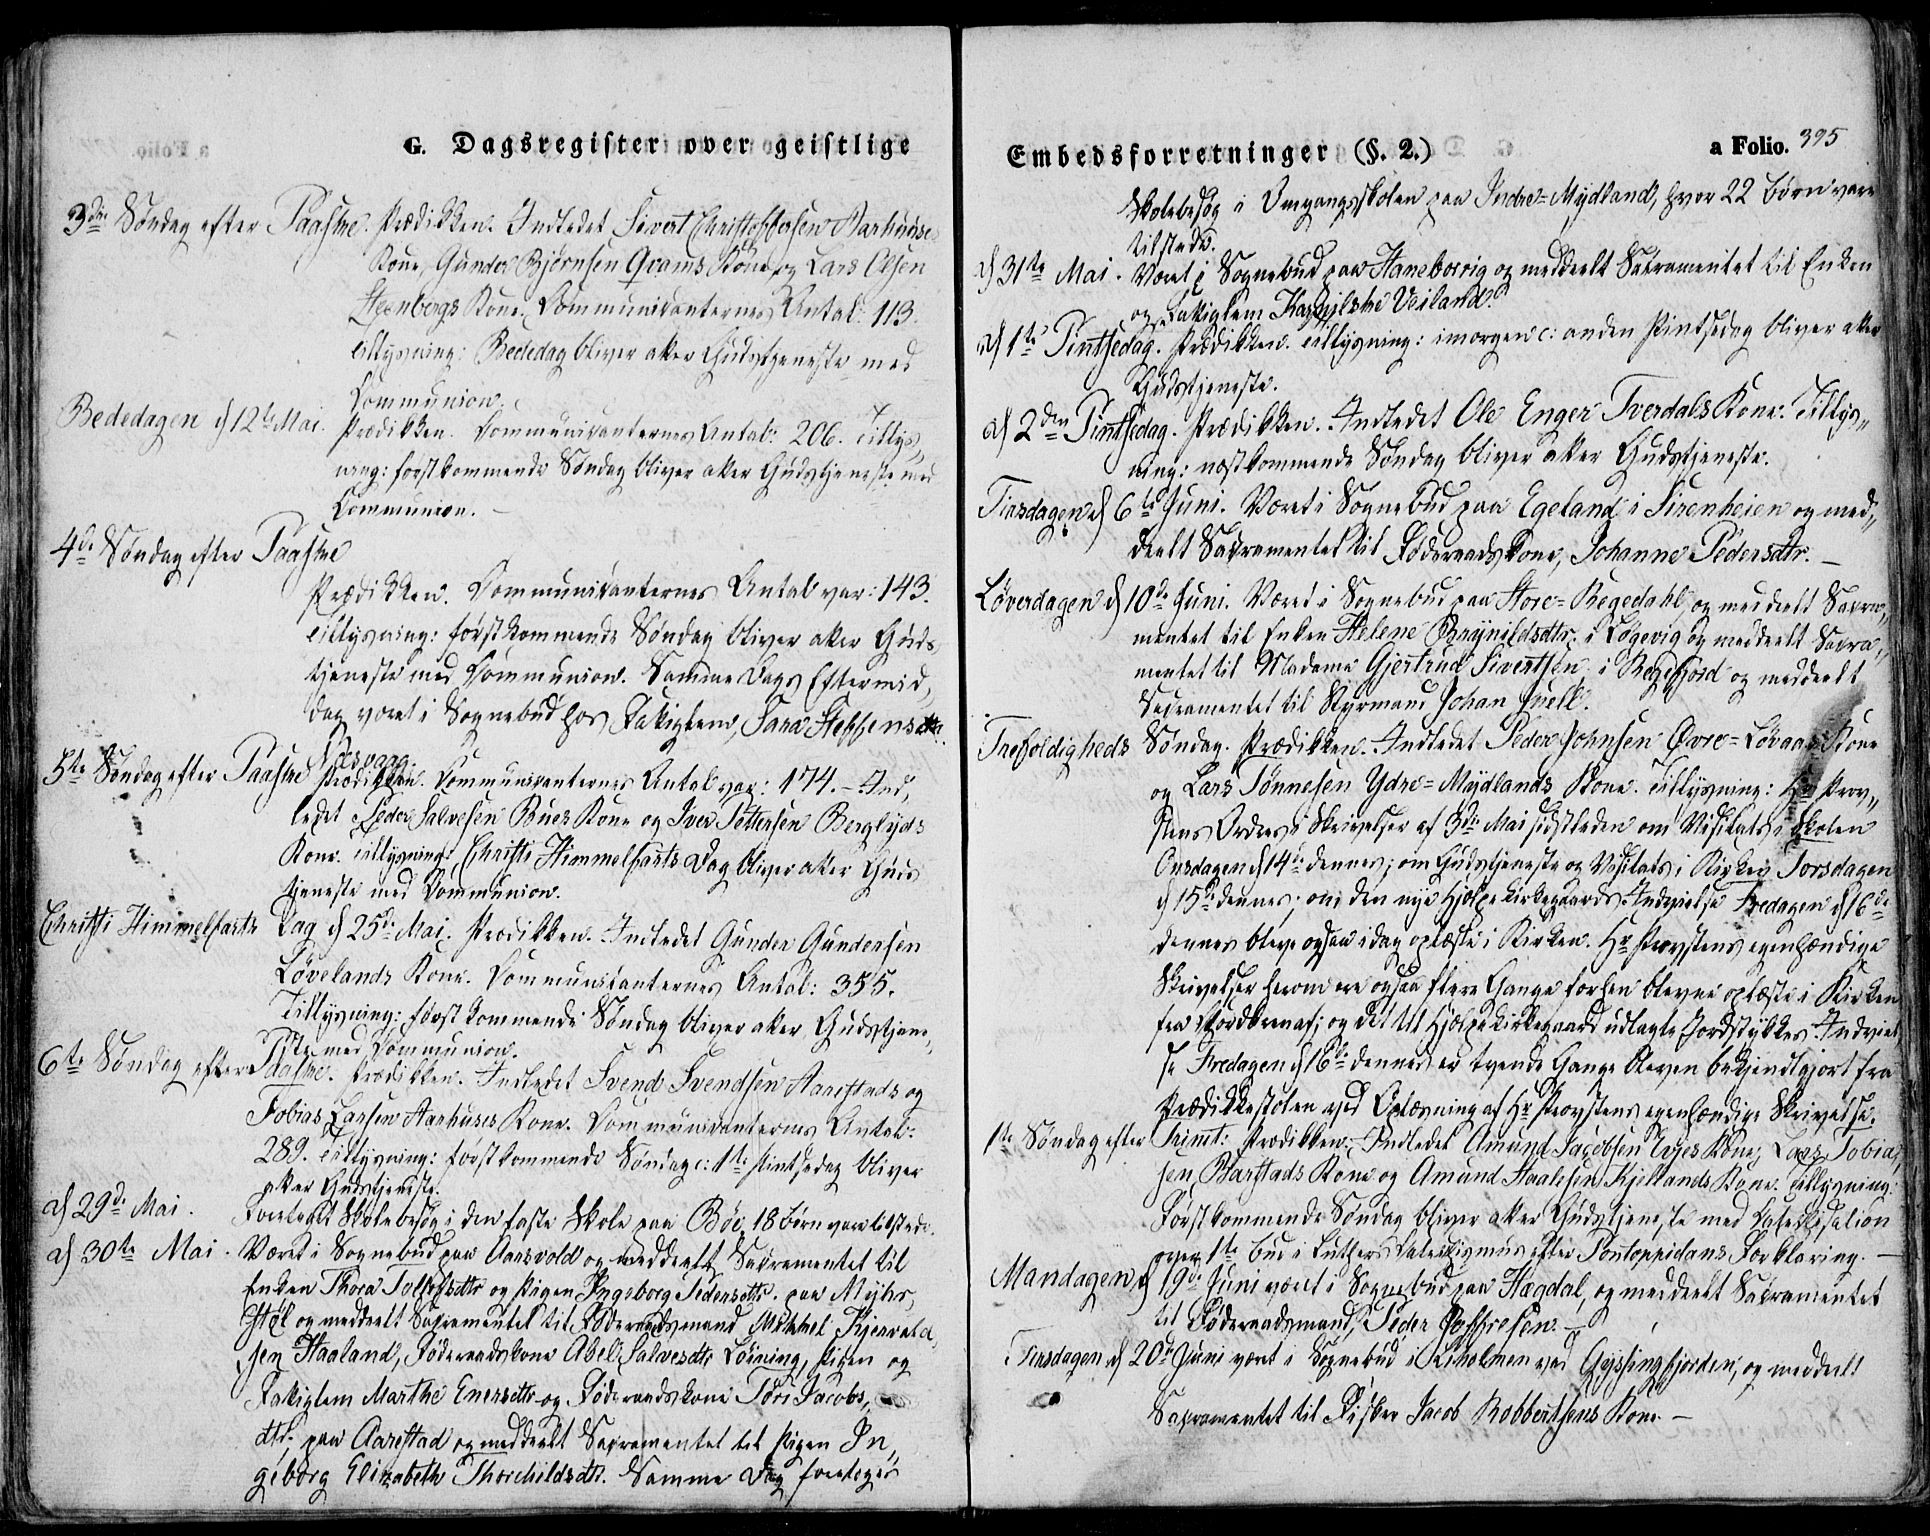 G. Dagsregister over geistlige
3die Søndag efter Paaske. Prædikken. Indledet Sivert Christophersen Aarhuuses
Kone, Gunder Bjørnsen Qvams Kone, og Lars Olsen
Steenbergs Kone. Communicanternes Antal: 113.
Tillysning: Bededag bliver atter Gudstjeneste med
Communion.
Bededagen d 12te Mai. Prædikken. Communicanternes Antal: 206. Tillys„
ning: førstkommende Søndag bliver atter Gudstjeneste med
Communion. –
4de Søndag efter Paaske
Prædikken. Communicanternes Antal var: 143.
Tillysning: førstkommende Søndag bliver atter Guds
tjeneste med Communion. Samme Dags Eftermid„
dag været i Sognebud hos Fattiglem, Sara Steffensdtr
5te Søndag efter Paaske Prædikken. Communicanternes Antal var: 174. – Ind„
ledet Peder Salvesen Bues Kone og Iver Pettersen Berglyds
Kone. Tillysning: Christi Himmelfarts Dag bliver atter Guds
tjeneste med Communion.
Christi Himmelfarts Dag d 25de Mai. Prædikken. Indledet Gunder Gundersen
Løvelands Kone. Communicanternes Antal: 355.
Tillysning: førstkommende Søndag bliver atter Gudstjene„
ste med Communion.
6te Søndag efter Paaske. Prædikken. Indledet Svend Svendsen Aarestads og
Tobias Larsen Aarhuses Kone. Communicanternes Antal:
289. Tillysning: førstkommende Søndag c: 1te Pintsedag bliver
atter Gudstjeneste.
d 29de Mai. Foretaget Skolebesøg i den faste Skole paa Bøe, 18 Børn vare tilstede.
d 30te Mai. Været i Sognebud paa Aarsvold og meddeelt Sacramentet til
Enken Thora Tollefsdtr og Pigen Ingeborg Pedersdtr. paa Myhr„
støl og meddeelt Sacramentet til Føderaadsmand Mikkel Kjervald„
sen Haaland, Føderaadskone Abel Salvesdtr Løining, Pigen og
Fattiglem Marthe Enersdtr og Føderaadskone Tori Jacobs„
dtr. paa Aarestad og meddeelt Sacramentet til Pigen In„
geborg Elizabeth Thorchildsdtr. Samme Dag foretoges
Embedsforretninger (§. 2.)
a Folio. 395
Skolebesøg i Omgangsskolen paa Indre=Mydland, hvor 22 Børn vare
tilstede.
d 31te Mai. Været i Sognebud paa Hanebervig og meddeelt Sacramentet til Enken
og Fattiglem Veiland.
d 1te Pintsedag. Prædikken. Tillysning: imorgen c: anden Pintsedag bliver atter
Gudstjeneste.
d 2den Pintsedag. Prædikken. Indledet Ole Enger Tverdals Kone. Tillys„
ning: næstkommende Søndag bliver atter Gudstjeneste.
Tirsdagen d 6te Juni. Været i Sognebud paa Egeland i Sirenheien og med„
deelt Sacramentet til Føderaadskone, Johanne Pedersdtr. –
Løverdagen d 10de Juni. Været i Sognebud paa Store=Regedahl, og meddeelt Sacra„
mentet til Enken Helene Brynildsdtr. i Løgevig og meddeelt Sacra„
mentet til Madame Gjertrud Sivertsen, i Regefjord og meddeelt
Sacramentet til Styrmand Johan Juell.
Trefoldigheds Søndag. Prædikken. Indledet Peder Johnsen Øvre=Løvaas Kone
og Lars Tønnesen Ydre=Mydlands Kone. Tillysning: Hr Prov„
stens Ordres i Skrivelser af 3die Mai sidstleden om Visitats i Skolen
Onsdagen d 14de dennes; om Gudstjeneste og Visitats i Kirken Torsdagen
d 15de dennes; om den nye Hjelpekirkegaards Indvielse Fredagen d 16de
dennes bleve ogsaa idag oplæste i Kirken. Hr Provstens egenhændige
Skrivelser herom ere ogsaa flere Gange forhen blevne oplæste i Kirken
fra Chordøren af; og det til Hjelpekirkegaard udlagte Jordstykkes Indviel
se Fredagen d 16de dennes er tvende Gange bleven bekjendtgjort fra
Prædikkestolen ved Oplæsning af Hr Provstens egenhændige Skrivelse.
1te Søndag efter Trinit: Prædikken. Indledet Amund Jacobsen Kone, Lars Tobia„
sen Barstads Kone og Amund Haalesen Kjellands Kone. Tillysning:
Førstkommende Søndag bliver atter Gudstjeneste med Catechisation
over 1te Bud i Luthers Catechismus efter Pontoppidans Forklaring. –
Mandagen d 19de Juni været i Sognebud paa Hægdal, og meddeelt Sacramentet
til Føderaadsmand, Peder Joffresen. –
Tirsdagen d 20de Juni været i Sognebud i ved Gyssingfjorden, og meddeelt
Sacramentet til Fisker Jacob Robbertsens Kone. –